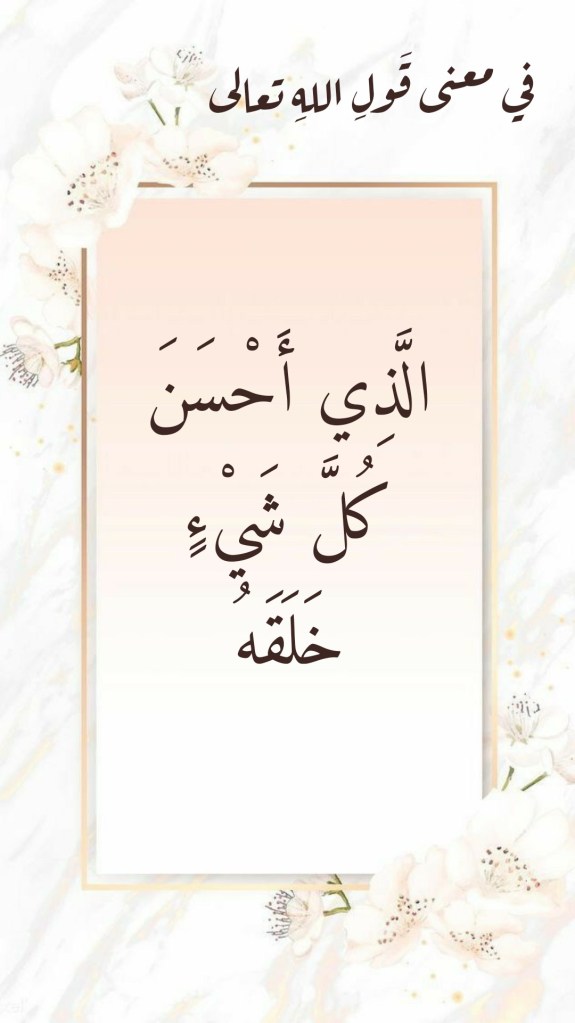 في معنى قَولِ اللهِ تعالى
الَّذِي أَحْسَنَ
كُلَّ شَيْءٍ
خَلَقَهُ